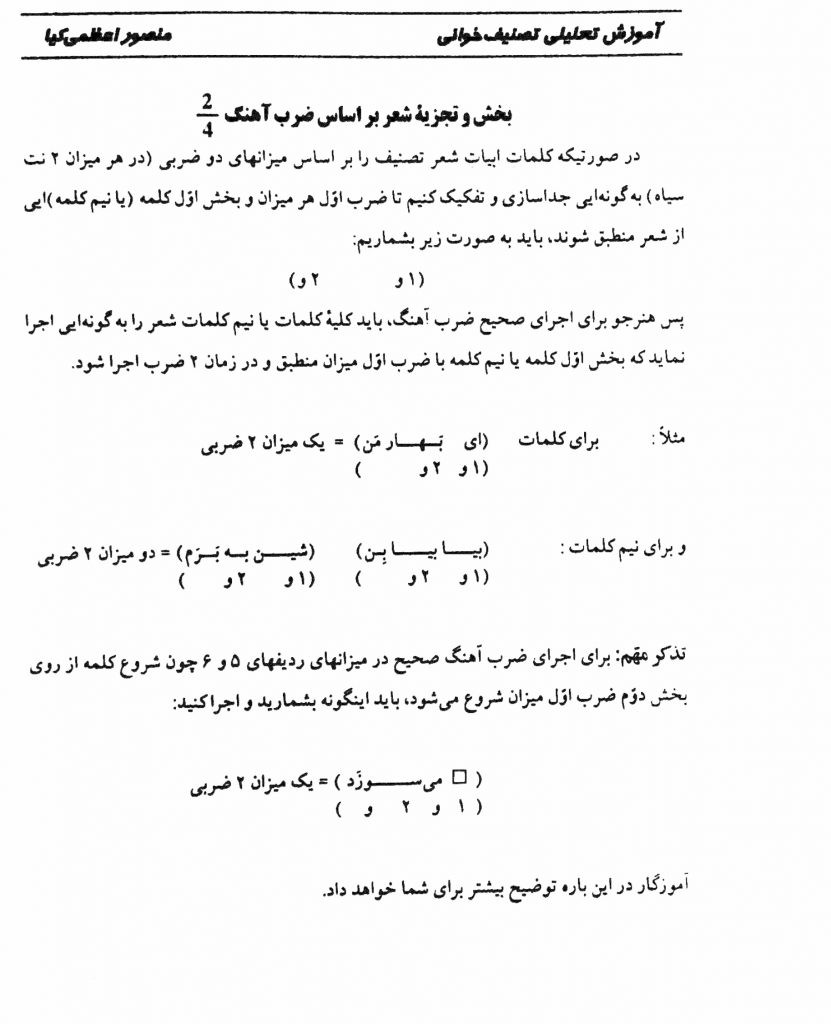 آموزش تحلیلی تصنیف‌خوانی منصور اعظمی‌کیا
بخش و تجزیهٔ شعر بر اساس ضرب آهنگ 2/4
در صورتیکه کلمات ابیات شعر تصنیف را بر اساس میزانهای دو ضربی (در هر میزان ۲ نت
سیاه) به گونه‌ایی جداسازی و تفکیک کنیم تا ضرب اوّل هر میزان و بخش اوّل کلمه (یا نیم کلمه)ایی
از شعر منطبق شوند، باید به صورت زیر بشماریم:
(۱ و ۲ و)
پس هنرجو برای اجرای صحیح ضرب آهنگ، باید کلیهٔ کلمات یا نیم کلمات شعر را به گونه‌ایی اجرا
نماید که بخش اوّل کلمه یا نیم کلمه با ضرب اوّل میزان منطبق و در زمان ۲ ضرب اجرا شود.
مثلاً : برای کلمات (ای بَـهـــار مَن) = یک میزان ۲ ضربی
(۱ و ۲ و )
و برای نیم کلمات : (بیـــا بیـــا بِـن) (شیـــن بــه بَــرَم) = دو میزان ۲ ضربی
(۱ و ۲ و ) (۱ و ۲ و )
تذکر مهّم: برای اجرای ضرب آهنگ صحیح در میزانهای ردیفهای ۵ و ۶ چون شروع کلمه از روی
بخش دوّم ضرب اوّل میزان شروع می‌شود، باید اینگونه بشمارید و اجرا کنید:
( □ می‌ســـــوزَد ) = یک میزان ۲ ضربی
( ۱ و ۲ و )
آموزگار در این باره توضیح بیشتر برای شما خواهد داد.